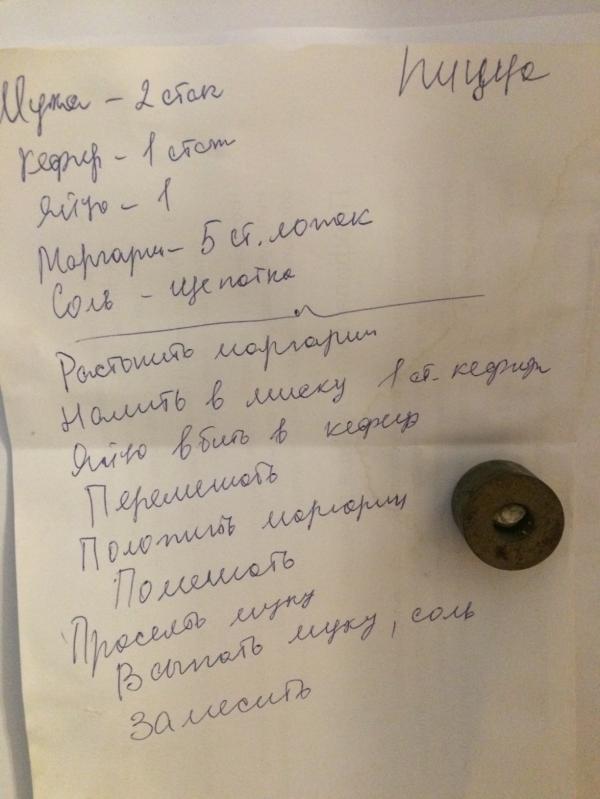 Пицца
Мука - 2 стак
Кефир - 1 стак
Яйцо - 1
Маргарин - 5 ст. ложек
Соль - щепотка
Растопить маргарин
Налить в миску 1 ст. кефира
Яйцо вбить в кефир
Перемешать
Положить маргарин
Помешать
Просеять муку
Всыпать муку, соль
Замесить